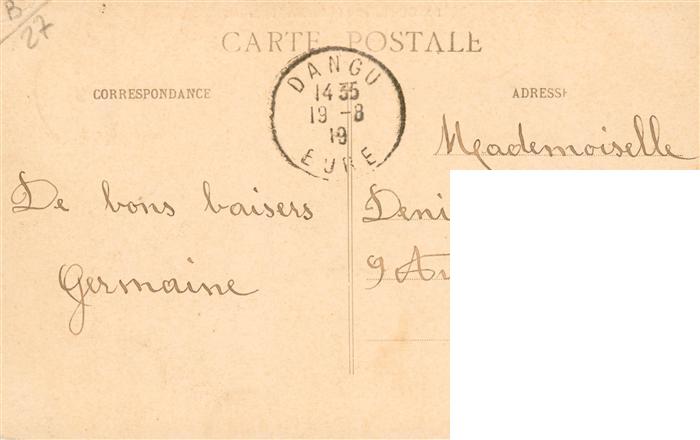 B
27
CARTE POSTALE
DANGU
14 35
19 -8
19
EURE
CORRESPONDANCE
ADRESSE
Mademoiselle
De bons baisers
Germaine
Deni
9 Av